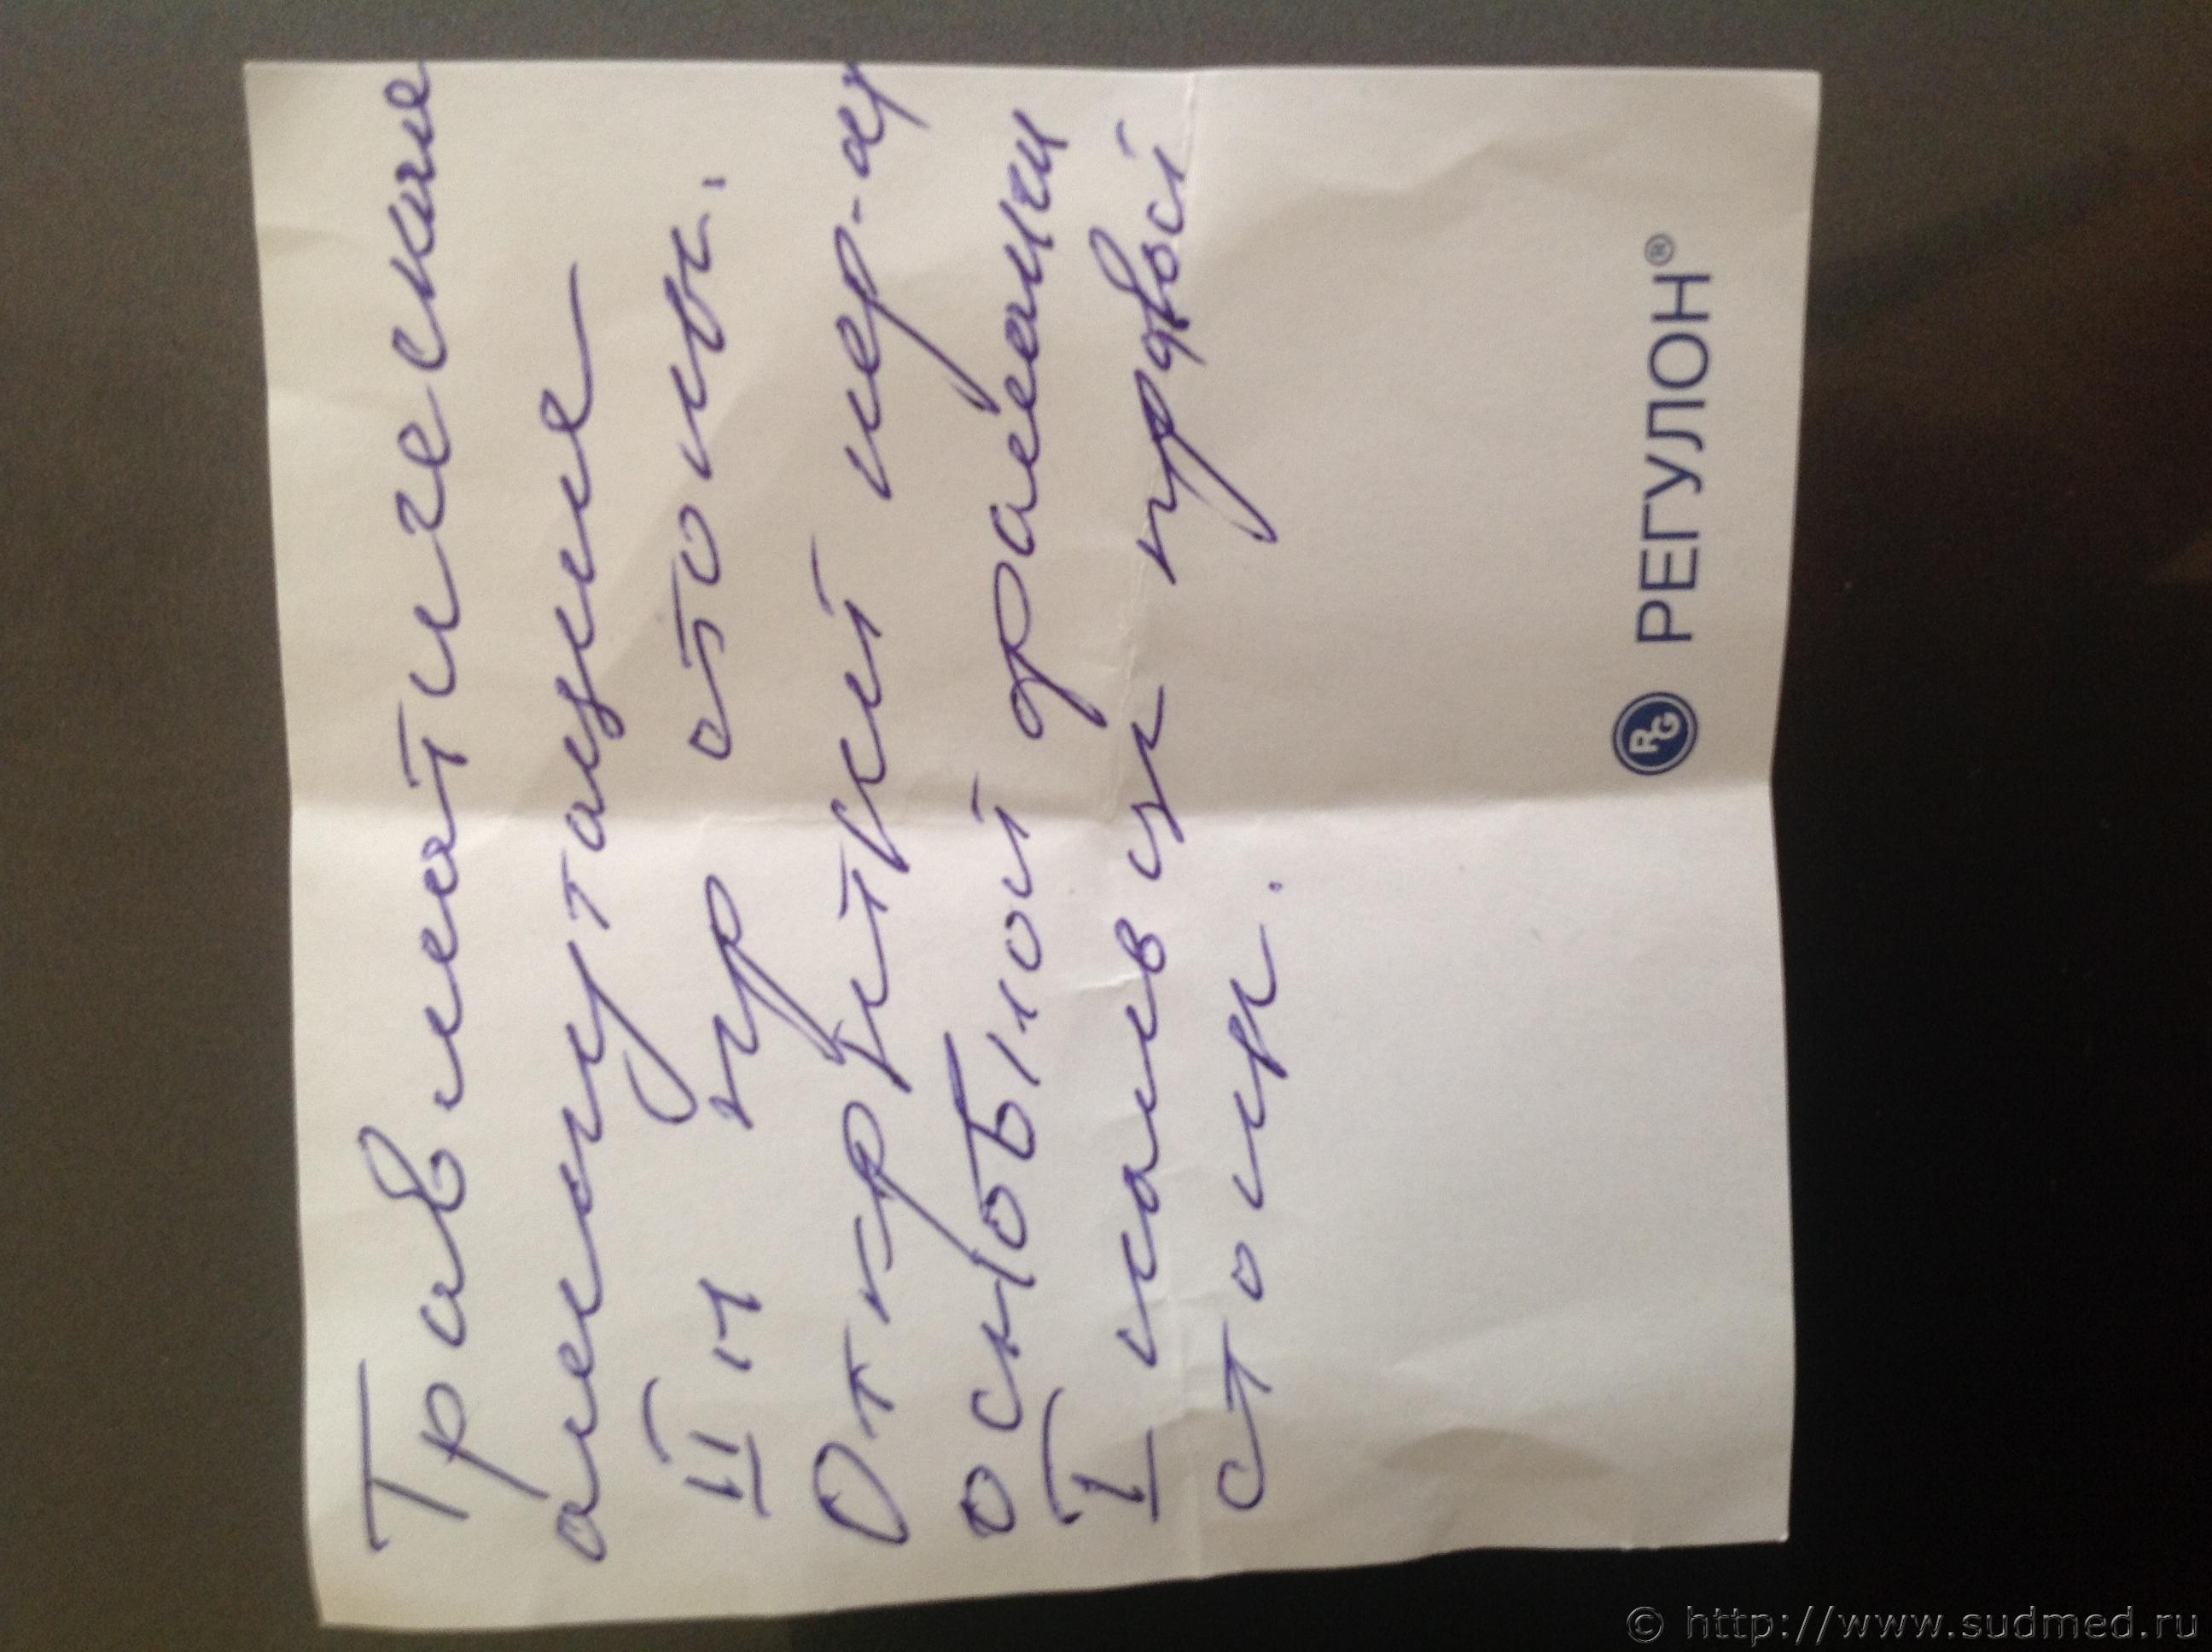 Травматическая
ампутация
II п пр стопы.
Открытый пер-ар
основной фаланги
I пальца правой
стопы.
RG РЕГУЛОН®
© http://www.sudmed.ru